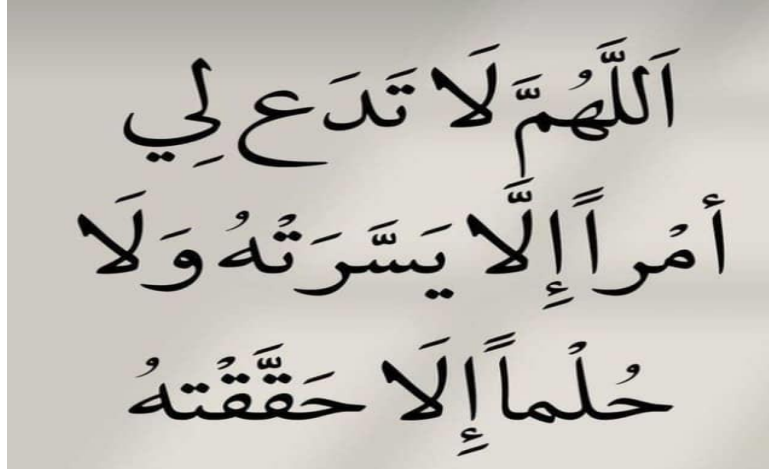 اَللَّهُمَّ لَا تَدَع لِي
أمْراً إِلَّا يَسَّرَتْهُ وَلَا
حُلْماً إِلَا حَقَّقْتهُ